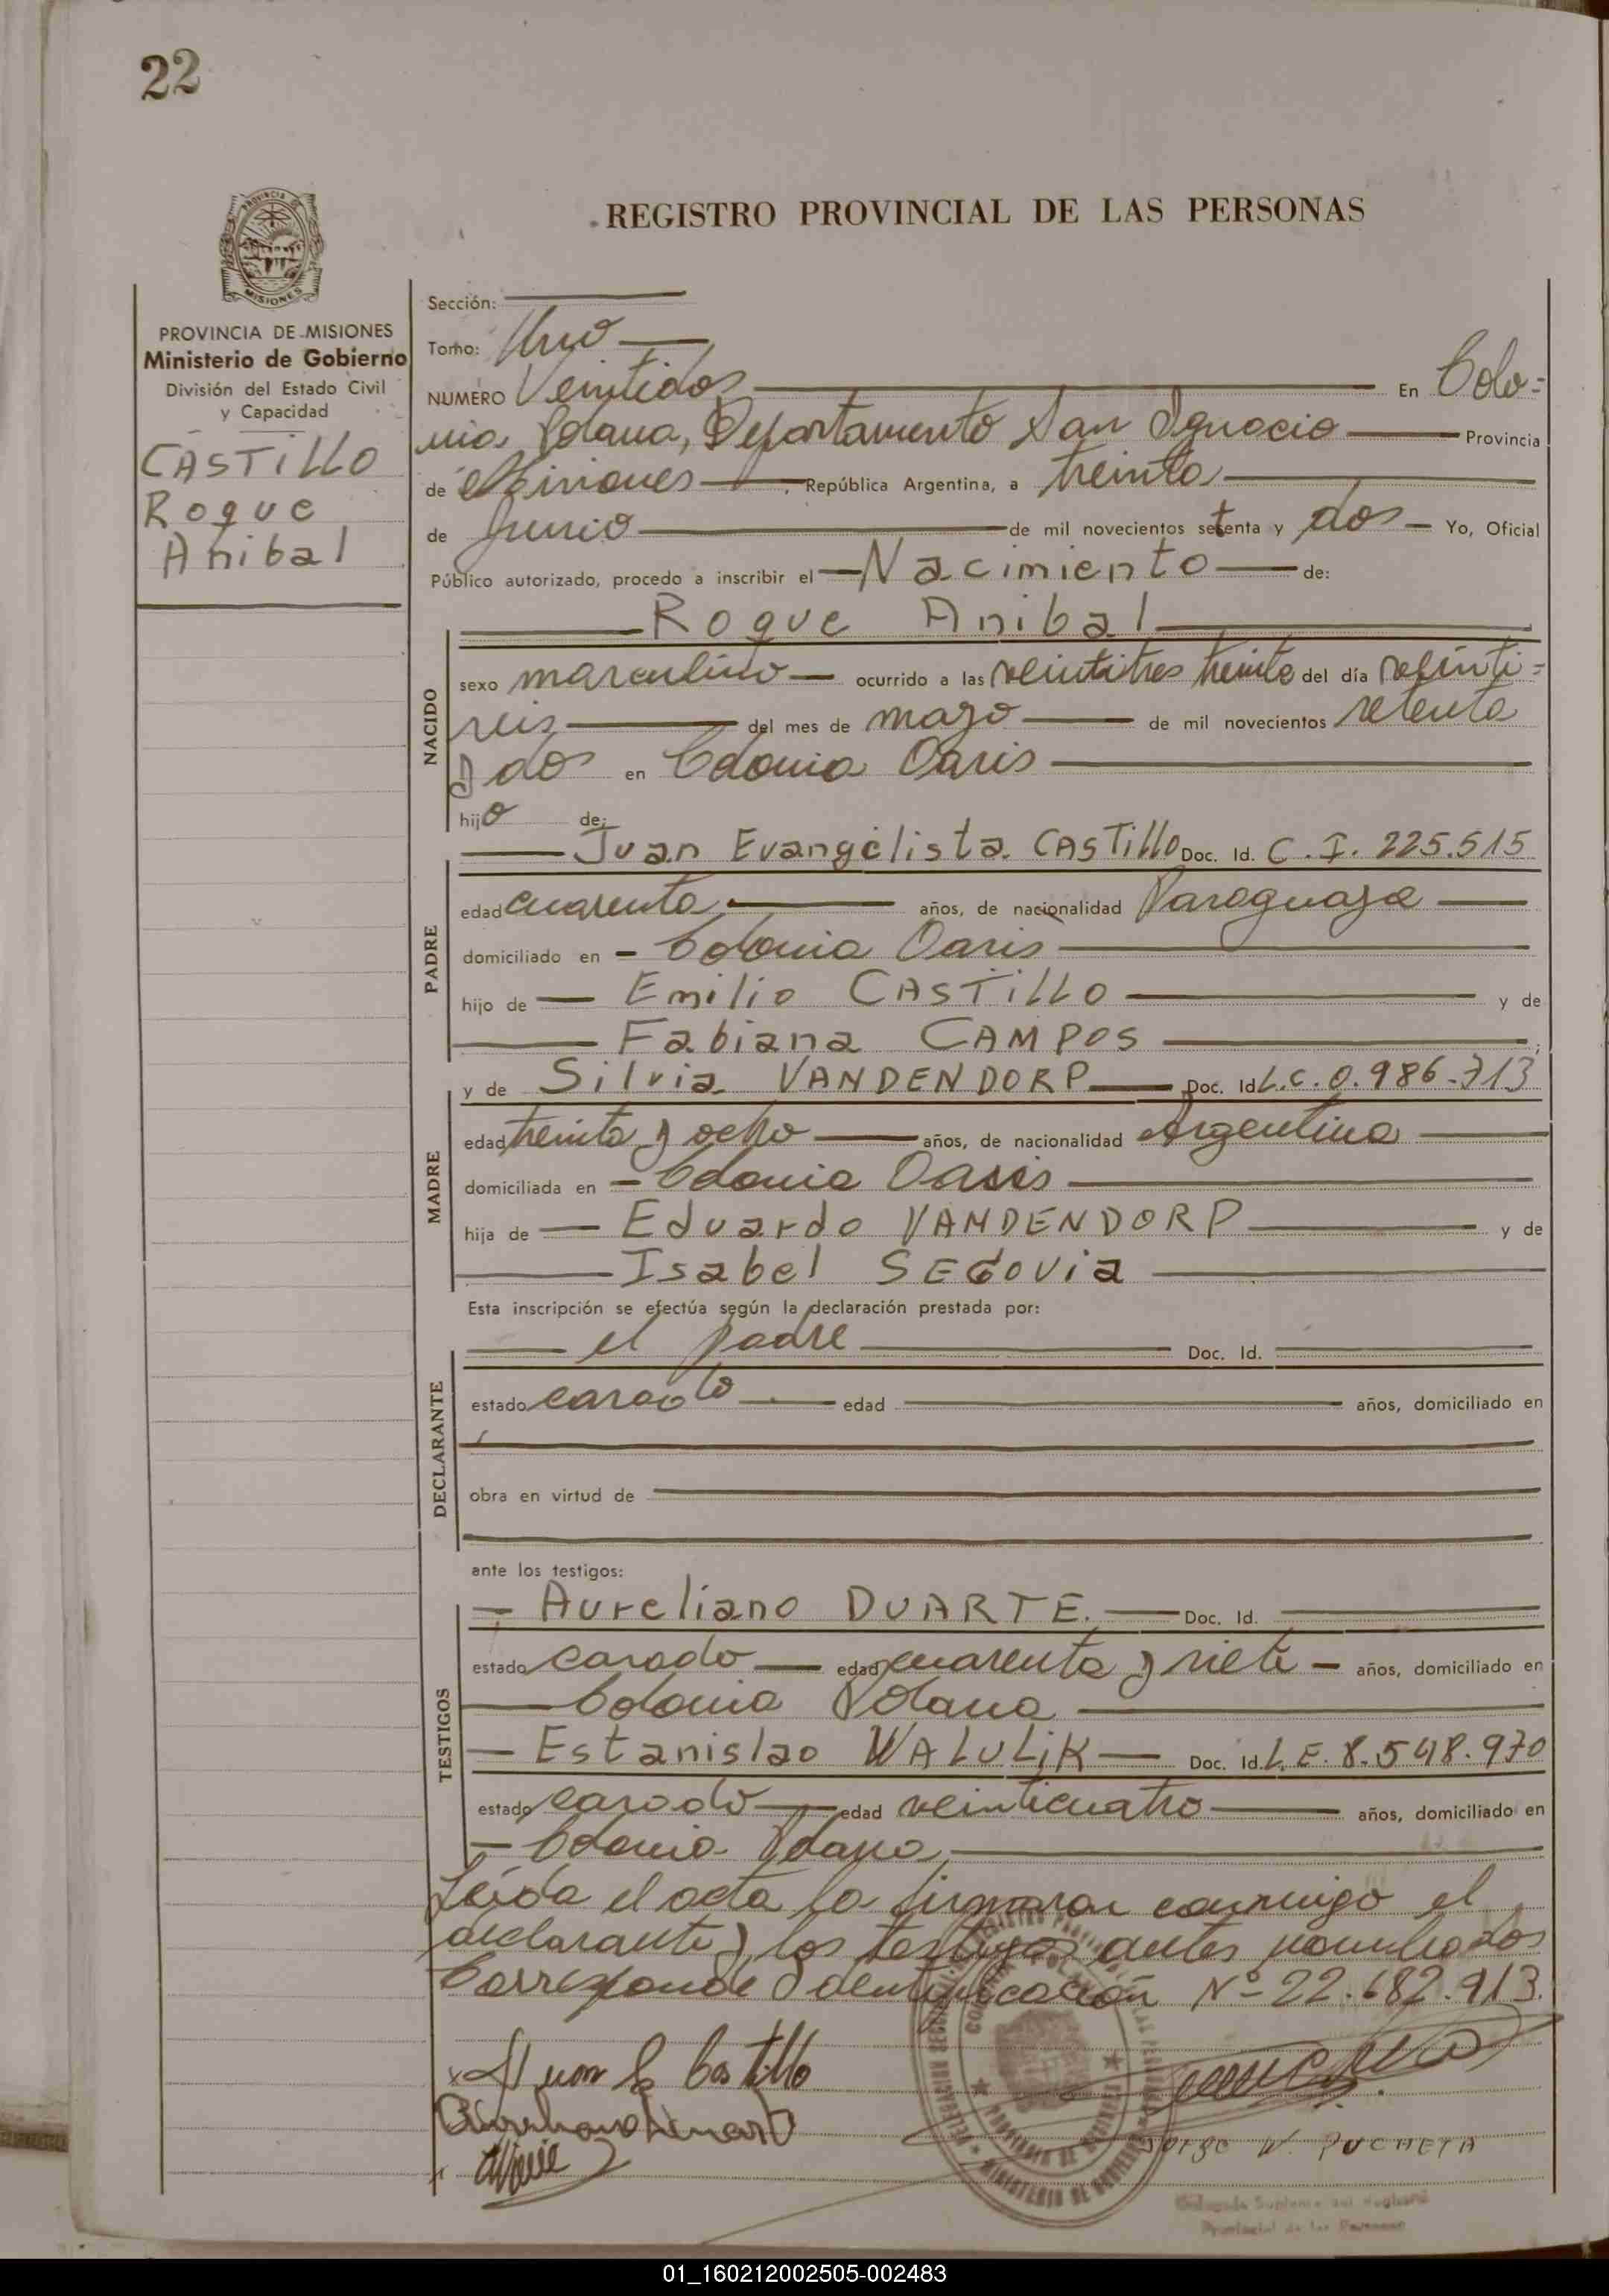 22
PROVINCIA DE MISIONES
REGISTRO PROVINCIAL DE LAS PERSONAS
PROVINCIA DE MISIONES
Ministerio de Gobierno
División del Estado Civil
y Capacidad
CASTILLO
Roque
Anibal
Sección:
Tomo: Uno
NUMERO Veintidos En Colo=
nia Polana, Departamento San Ignacio Provincia
de Misiones, República Argentina, a treinta
de Junio de mil novecientos setenta y dos Yo, Oficial
Público autorizado, procedo a inscribir el Nacimiento de:
Roque Anibal
NACIDO
sexo masculino ocurrido a las veintitres treinta del día veinti=
seis del mes de mayo de mil novecientos setenta
y dos en Colonia Oasis
hijo de:
Juan Evangelista CASTILLO Doc. Id. C.I. 225.515
PADRE
edad cuarenta años, de nacionalidad Paraguaya
domiciliado en Colonia Oasis
hijo de Emilio CASTILLO y de
Fabiana CAMPOS
y de Silvia VANDENDORP Doc. Id L.C. 0.986.713
MADRE
edad treinta y ocho años, de nacionalidad Argentina
domiciliada en Colonia Oasis
hija de Eduardo VANDENDORP y de
Isabel SEGOVIA
Esta inscripción se efectúa según la declaración prestada por:
el padre Doc. Id.
DECLARANTE
estado casado edad años, domiciliado en
obra en virtud de
ante los testigos:
Aureliano DUARTE. Doc. Id.
TESTIGOS
estado casado edad cuarenta y siete años, domiciliado en
Colonia Polana
Estanislao WALULIK Doc. Id. L.E. 8.548.970
estado casado edad veinticuatro años, domiciliado en
Colonia Polana
Leída el acta la firmaron conmigo el
declarante y los testigos antes nombrados
Corresponde Identificación Nº 22.682.913.
Juan E Castillo
Aureliano Duarte
JORGE W. PUCHETA
Delegado Suplente del Registro
Provincial de las Personas
01_160212002505-002483